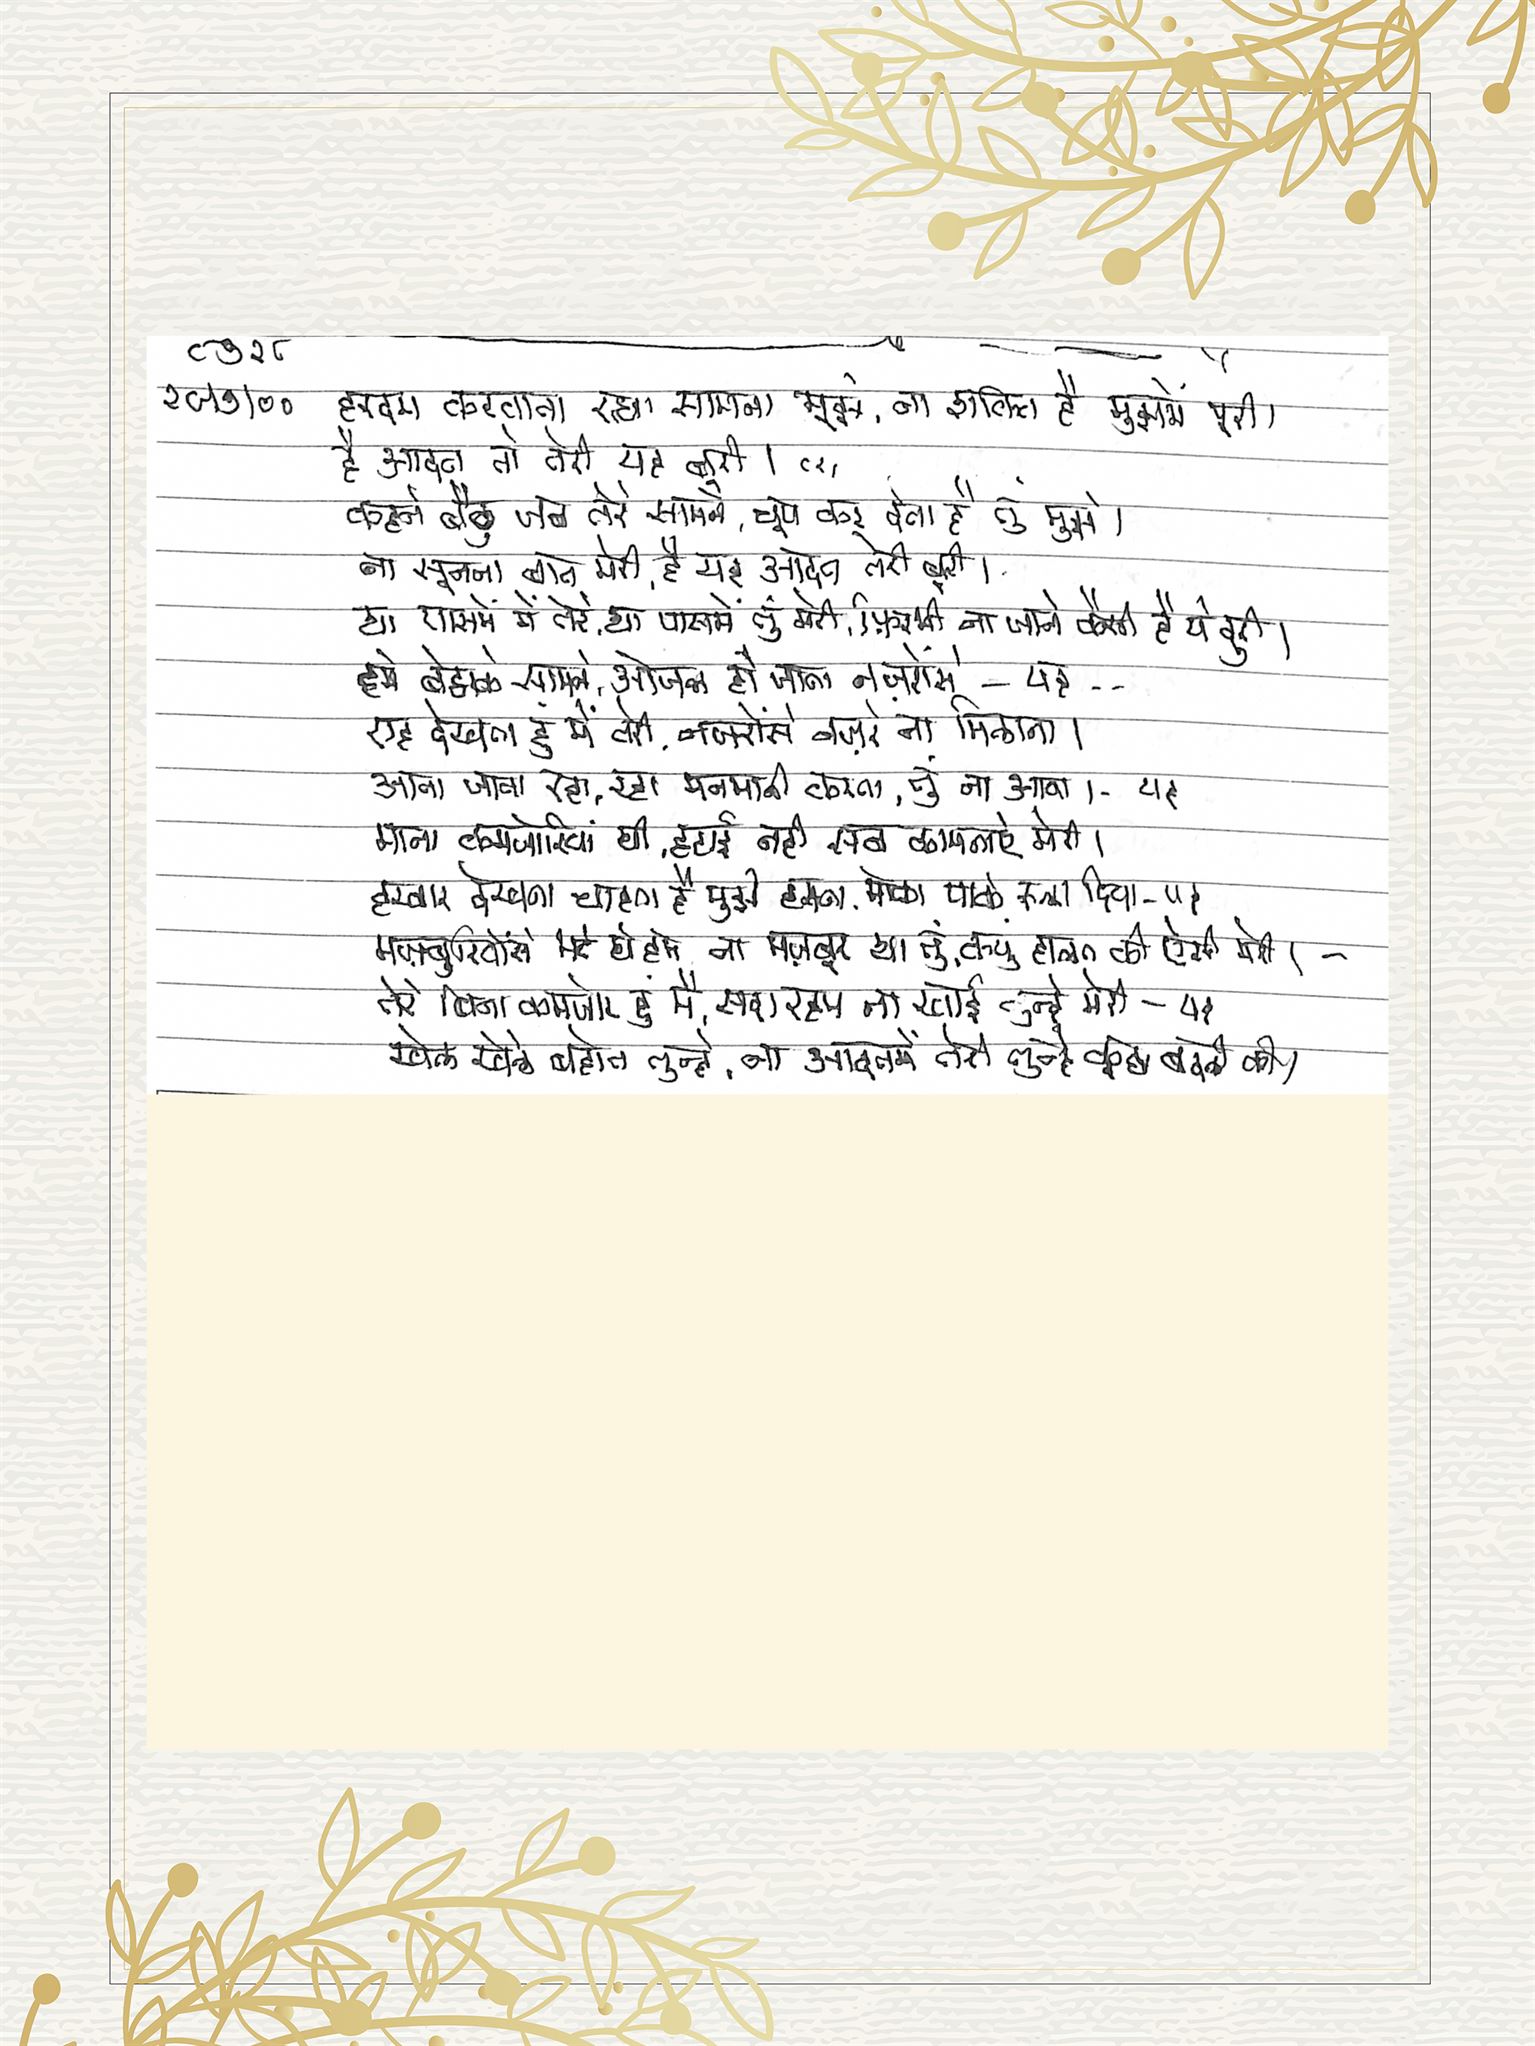 ८७२८
२७|७|०० हरदम करवाता रहा सामना मुझे, ना शक्ति है मुझमें पूरी।
है आदत तो तेरी यह बुरी। (२)
कहने बैठु जब तेरे सामने, चूप कर देता है तुं मुझे।
ना सूनना बात मेरी, है यह आदत तेरी बूरी।
था पासमें में तेरे, था पासमें तुं मेरी, फ़िरभी ना जाने कैसी है ये दुरी।
हमे बेठाके सामने, ओजल हो जाता नज़रोंसे - यह --
राह देखता हुं में तेरी, नजरोंसे नज़रे ना मिलाना।
आना जाना रहा, रहा मनमानी करता, तुं ना आया।- यह
माना कमजोरियां थी, हटाई नही सब कामनाएे मेरी।
हरबार देखना चाहता है मुझे हसता, मोका पाके रुला दिया- यह
मज़बुरियोंसे भरे थे हम, ना मज़बूर था तुं, क्युं हालत की ऐसी मेरी। -
तेरे बिना कमजोर हुं मैं, सदा रहम ना खाई तुन्हे मेरी - यह
खेल खेले बहोत तुन्हे, ना आदतमें तेरी तुन्हे कुछ बदली की।